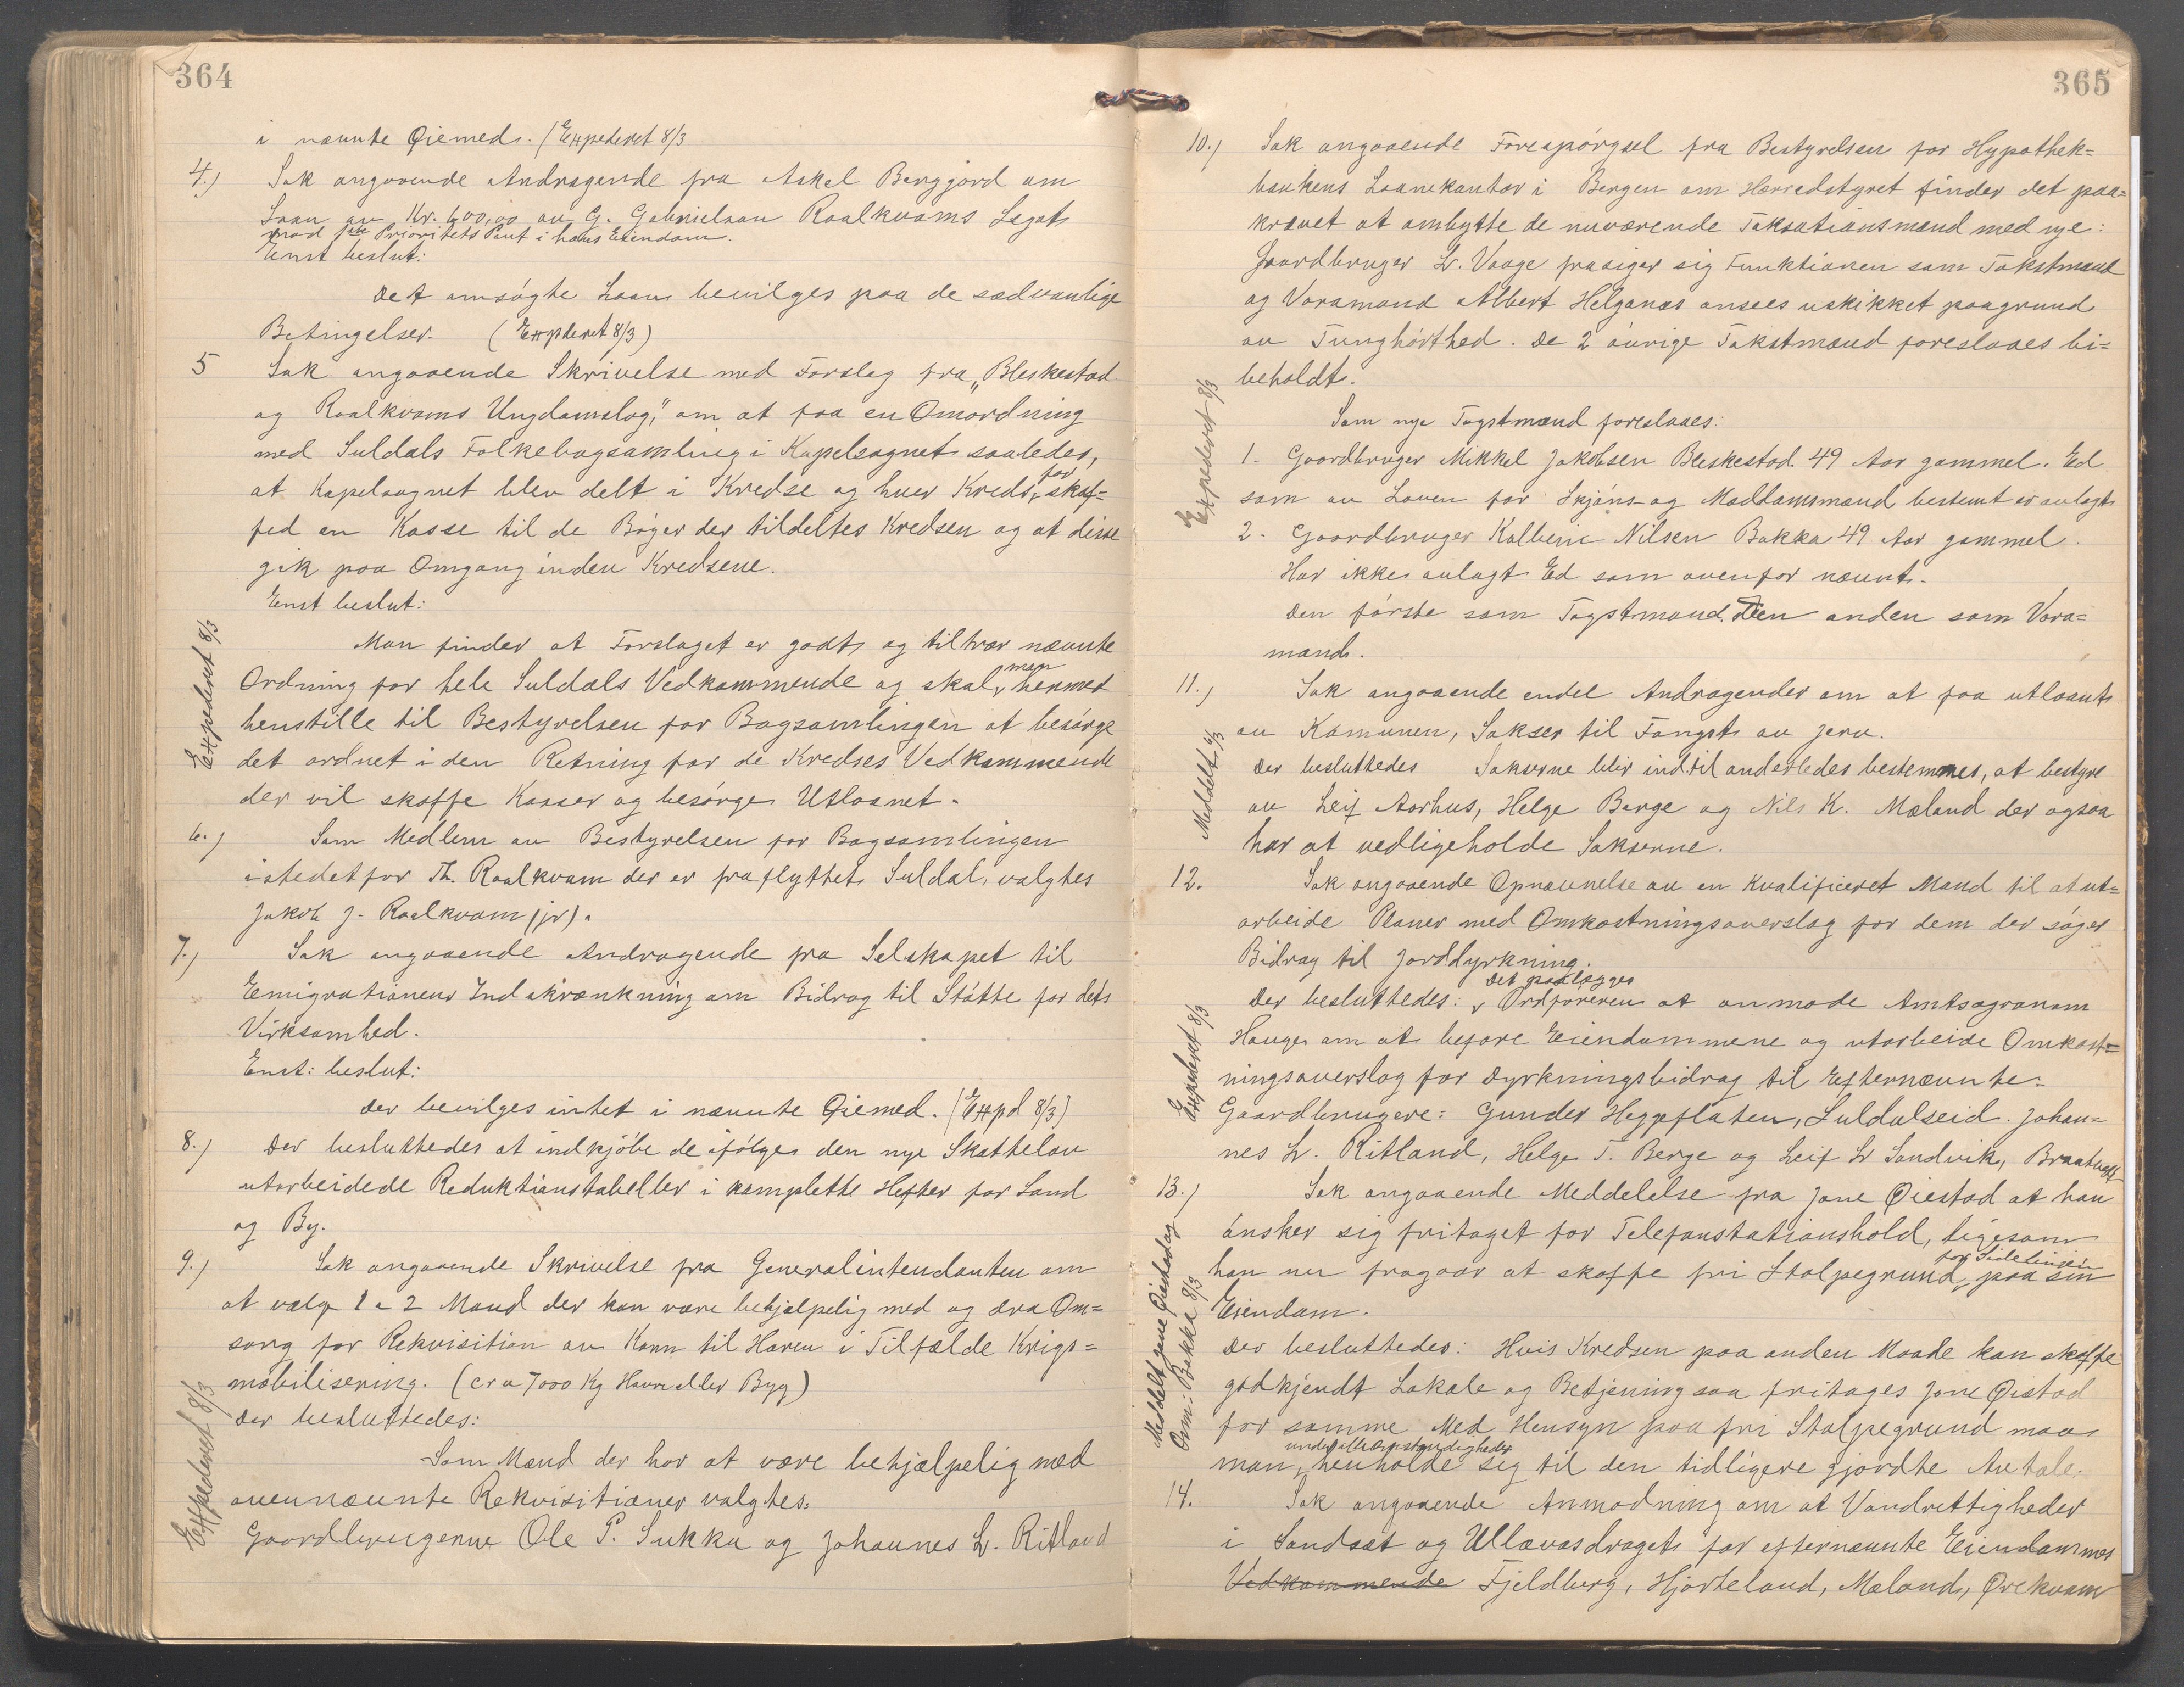 364
i nævnte Øiemed. (Expederet 8/3
4.) Sak angaaende Andragende fra Askel Bergjord om
Laan av Kr. 600,00 av G. Gabrielsen Roalkvams Legat
mod 1ste Prioritets Pant i hans Eiendom.
Enst beslut:
Det ansøgte Laan bevilges paa de sædvanlige
Betingelser. (Expderet 8/3)
5 Sak angaaende Skrivelse med Forslag fra „Bleskestad
og Roalkvams Ungdomslag," om at faa en Omordning
med Suldals Folkebogsamling i Kapelsognet saaledes,
at Kapelsognet blev delt i Kredse og hver Kreds faar skaf=
fed en Kasse til de Bøger der tildeltes Kredsen og at disse
gik paa Omgang inden Kredsene.
Enst beslut:
Man finder at Forslaget er godt og tiltrær nævnte
Ordning for hele Suldals Vedkommende og skal man hermed
henstille til Bestyrelsen for Bogsamlingen at besørge
det ordnet i den Retning for de Kredses Vedkommende
der vil skaffe Kasser og besørge Utlaanet.
Expederet 8/3
6.) Som Medlem av Bestyrelsen for Bogsamlingen
istedetfor Th. Roalkvam der er fraflyttet Suldal, valgtes
Jakob J. Roalkvam (jr).
7.) Sak angaaende Andragende fra Selskapet til
Emigrationens Indskrænkning om Bidrag til Støtte for dets
Virksomhed.
Enst: beslut:
Der bevilges intet i nævnte Øiemed. (Expd 8/3)
8.) Der besluttedes at indkjøbe de ifølge den nye Skattelov
utarbeidede Reduktionstabeller i komplette Hefter for Land
og By.
9.) Sak angaaende Skrivelse fra Generalintendanten om
at vælge 1 a 2 Mænd der kan være behjælpelig med og dra Om=
sorg for Rekvisition av Korn til Hæren i Tilfælde Krigs=
mobilisering. (cr a 7000 Kg Havre eller Byg)
Der besluttedes:
Som Mænd der har at være behjælpelig med
ovennævnte Rekvisitioner valgtes:
Gaardbrugerne Ole P. Sukka og Johannes L. Ritland
Expederet 8/3
365
10.) Sak angaaende Forespørgsel fra Bestyrelsen for Hypothek=
bankens Laanekontor i Bergen om Herredstyret finder det paa=
krævet at ombytte de nuværende Taksationsmænd med nye:
Gaardbruger L. Vaage frasiger sig Funktionen som Takstmand
og Varamand Albert Helganæs ansees uskikket paagrund
av Tunghørthed. De 2 øvrige Takstmænd foreslaaes bi=
beholdt.
Som nye Tagstmænd foreslaaes:
1. Gaardbruger Mikkel Jakobsen Bleskestad 49 Aar gammel. Ed
som av Loven for Skjøns- og Meddomsmænd bestemt er avlagt
2. Gaardbruger Kolbein Nilsen Bakka 49 Aar gammel.
Har ikke avlagt Ed som ovenfor nævnt.
Den første som Tagstmand. Den anden som Vara=
mand.
Expederet 8/3
11.) Sak angaaende endel Andragender om at faa utlaant
av Komunen, Sakser til Fangst av Jerv.
Der besluttedes Sakserne blir indtil anderledes bestemmes, at bestyre
av Leif Aarhus, Helge Berge og Nils K. Mæland der ogsaa
har at vedligeholde Sakserne.
Meddelt 8/3
12. Sak angaaende Opnævnelse av en kvalificeret Mand til at ut=
arbeide Planer med Omkostningsoverslag for dem der søger
Bidrag til Jorddyrkning.
Der besluttedes: Det paalægges Ordføreren at anmode Amtsagronom
Hauge om at befare Eiendommene og utarbeide Omkost=
ningsoverslag for Dyrkningsbidrag til Efternævnte
Gaardbrugere: Gunder Heggflaten, Suldalseid. Johan=
nes L. Ritland, Helge T. Berge og Leif L Sandvik, Braatveit
Expederet 8/3
13.) Sak angaaende Meddelelse fra Jone Øiestad at han
ønsker sig fritaget for Telefonstationshold, ligesom
han nu fragaar at skaffe fri Stolpegrund for Sidelinien paa sin
Eiendom.
Der besluttedes: Hvis Kredsen paa anden Maade kan skaffe
godkjendt Lokale og Betjening saa fritages Jone Øistad
for samme. Med Hensyn paa fri Stolpegrund maa
man under alle Omstændigheder henholde sig til den tidligere gjordte Avtale.
Meddelt Jone Øiestad og
Om. Bakka 8/3
14. Sak angaaende Anmodning om at Vandrettigheder
i Sandsæt og Ullavasdraget for efternævnte Eiendommes
Vedkommende Fjeldberg, Hjorteland, Mæland, Ørekvam